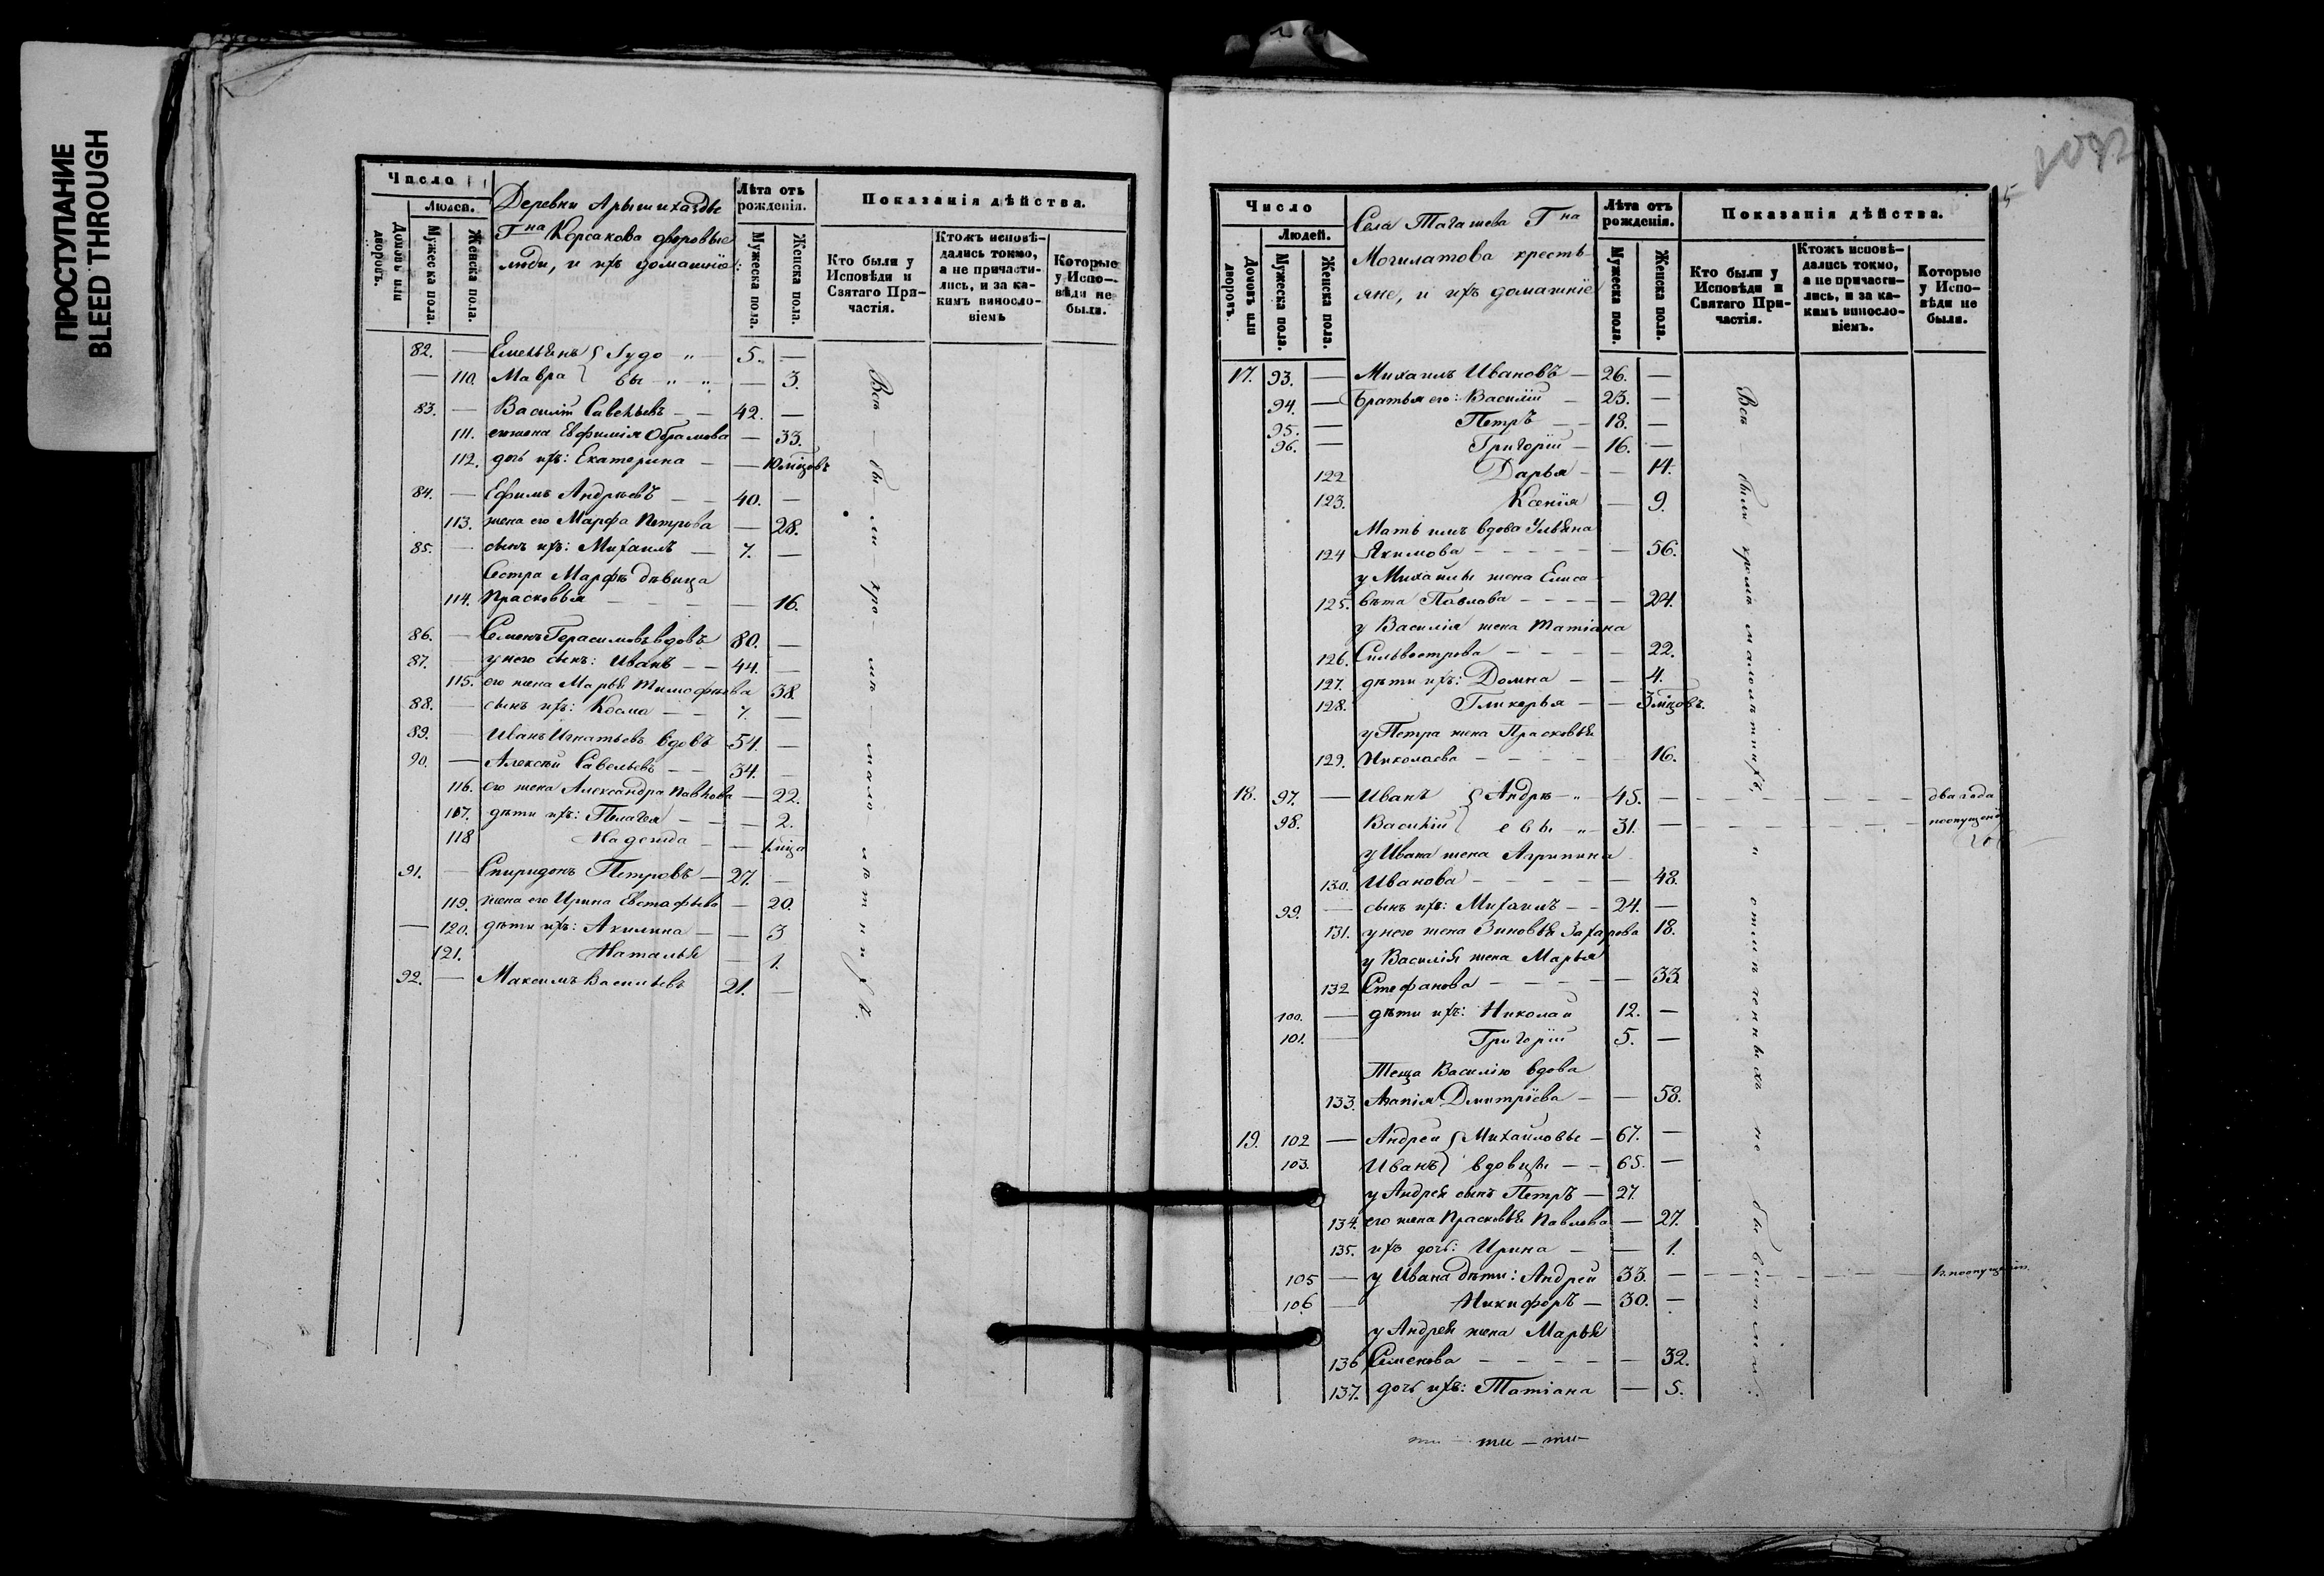 ПРОСТУПАНИЕ
BLEED THROUGH
Число
Людей.
Домовъ или дворовъ.
Мужеска пола.
Женска пола.
Деревни
Г на Корсакова дворовые
люди, и ихъ домашніе:
Лѣта отъ рожденія.
Мужеска пола.
Женска пола.
Показанія дѣйства.
Кто были у Исповѣди и Святаго Причастія.
Ктожъ исповѣдались токмо, а не причастились, и за какимъ винословіемъ
Которые у Исповѣди не были.
82. — Емельянъ — 5. —
— 110. Мавра — 3.
83. — Василій Савельевъ — — 42. —
111. его жена Евфимія Обрамова — 33.
112. дочь ихъ: Екатерина — — 10 мѣцовъ
84. — Ефимъ Андреевъ — — 40. —
113. жена его Марфа Петрова — 28.
85. — сынъ ихъ: Михаилъ — 7. —
Сестра Марфѣ дѣвица
114. Прасковья — — — — 16.
86. — Семенъ Герасимовъ вдовъ 80. —
87. — у него сынъ: Иванъ — — 44. —
115. его жена Марья Тимофѣева 38
88. — сынъ ихъ: Косма — — 7. —
89. — Иванъ Игнатьевъ вдовъ 54. —
90. — Алексѣй Савельевъ — — 34. —
116. его жена Александра Павлова — 22.
117. дѣти ихъ: Пелагея — — — 2.
118 Надежда — —
91. — Спиридонъ Петровъ — 27. —
119. жена его Ирина Евстафьева — 20.
— 120. дѣти ихъ: Акилина — — 3
121. Наталья — 1.
92. — Максимъ Васильевъ 21. —
Всѣ — бы — ли — кро — мѣ — мало лѣтнихъ.
Число
Людей.
Домовъ или дворовъ.
Мужеска пола.
Женска пола.
Села Тагашева Г на
Могилатова кресть-
яне, и ихъ домашніе
Лѣта отъ рожденія.
Мужеска пола.
Женска пола.
Показанія дѣйства.
Кто были у Исповѣди и Святаго Причастія.
Ктожъ исповѣдались токмо, а не причастились, и за какимъ винословіемъ.
Которые у Исповѣди не были.
17. 93. — Михаилъ Ивановъ — 26. —
94. — Братья его: Василій — 23. —
95. — Петръ — — 18. —
96. — Григорій — 16. —
122 Дарья — — 14.
123. Ксенія — 9.
Мать имъ вдова Ульяна
124 Якимова — — — — — 56.
у Михайлы жена Елиса-
125. вѣта Павлова — — — — 24.
у Василія жена Татіана
126. Сильвестрова — — — — 22.
127. дѣти ихъ: Домна — — 4.
128. Гликерья — — 3 мѣцовъ.
у Петра жена Прасковья
129. Николаева — — — — 16.
18. 97. — Иванъ } Андрѣ — 45. — — — — два года
98. Василій } евы — 31. — — — — по опущенію
у Ивана жена Агрипина
130. Иванова — — — — — 48.
99. — сынъ ихъ: Михаилъ — — 24. —
131. у него жена Зиновья Захарова 18.
у Василія жена Марья
132 Стефанова — — — — — 33
100. — дѣти ихъ: Николай 12. —
101. — Григорій 5. —
Теща Василію вдова
133. Агапія Дмитріева — — 58.
19. 102 — Андрей } Михайловы — 67. —
103. Иванъ } вдовцы — — 65. —
у Андрея сынъ Петръ — 27.
134. его жена Прасковья Павлова — 27.
135. ихъ дочь: Ирина — — 1.
105 — у Ивана дѣти: Андрей 33. —
106 — Никифоръ — 30. —
у Андрея жена Марья
136 Семенова — — — — — 32.
137. дочь ихъ: Татіана — 5.
Всѣ — были кромѣ малолѣтнихъ, и отмѣченныхъ не бывшими: